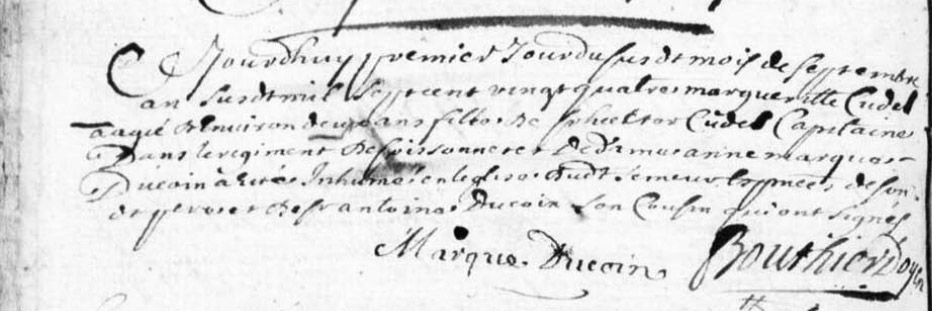 Cejourdhuy premier Jour du susdt mois de septembre
an susdt mil sept cent vingt quatre marguerille Cudel
aagée denviron deux ans fille de sr hecktor Cudel Capitaine
Dans le regiment de et de dlle anne marque
Ducoin a été Inhumée en leglise dudt en presence de son
dt pere et de sr antoine Ducoin son Cousin qui ont signés
Marque Ducoin Bouthier Doyen